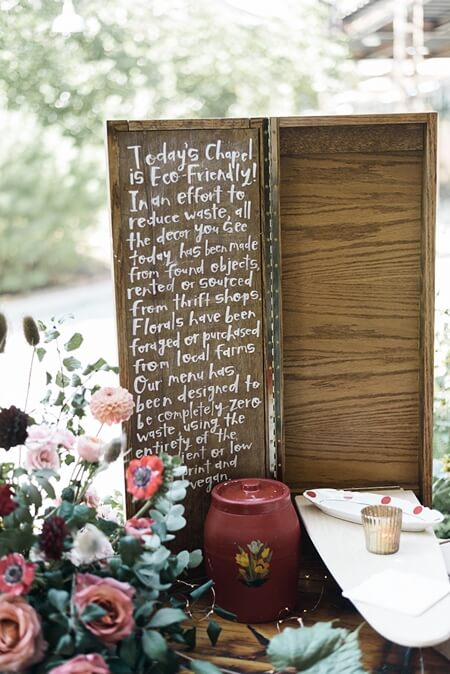 Today's Chapel
is Eco-Friendly!
In an effort to
reduce waste, all
the decor you see
today, has been made
from found objects,
rented or sourced
from thrift shops.
Florals have been
foraged or purchased
from local farms
Our menu has
been designed to
be completely zero
waste, using the
entirety of the
or low
print and
vegan.